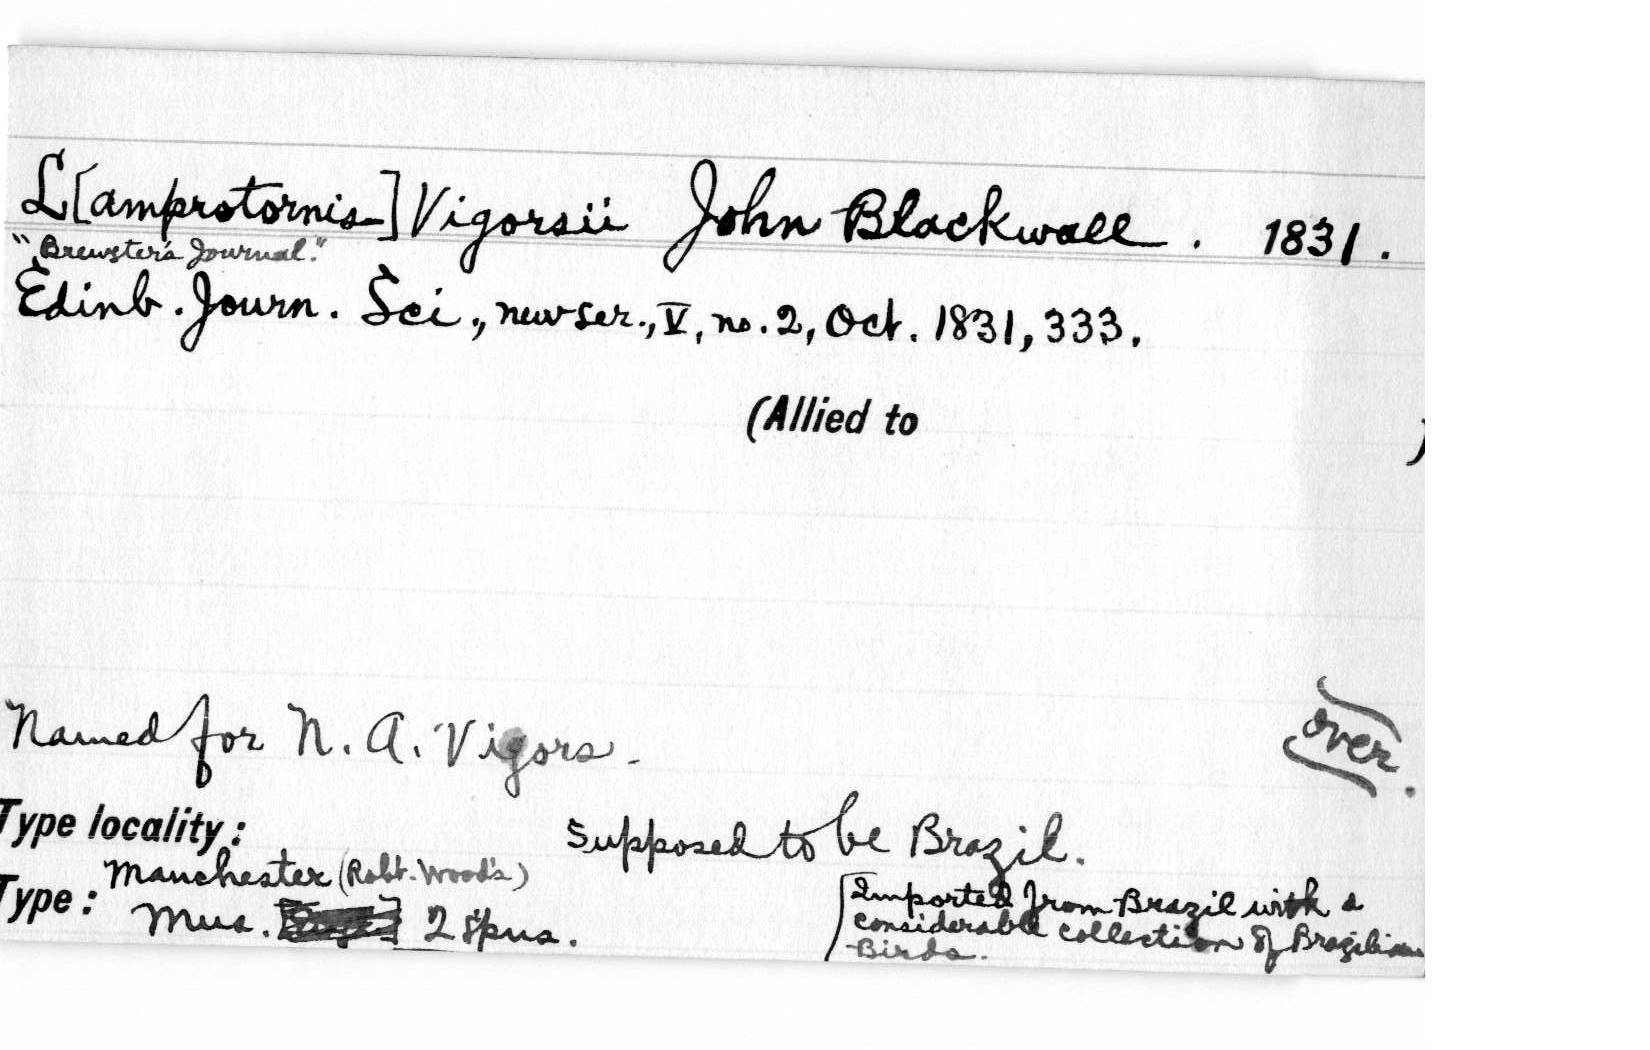 L[amprotornis] Vigorsii John Blackwall. 1831.
"Brewster's Journal."
Edinb. Journ. Sci., new ser., V, no. 2, Oct. 1831, 333.
(Allied to )
Named for N. A. Vigors.
over.
Type locality: Supposed to be Brazil.
Manchester (Robt. Wood's)
Type: Mus. 2 spns.
[Imported from Brazil with a
considerable collection of Brazilian
Birds.